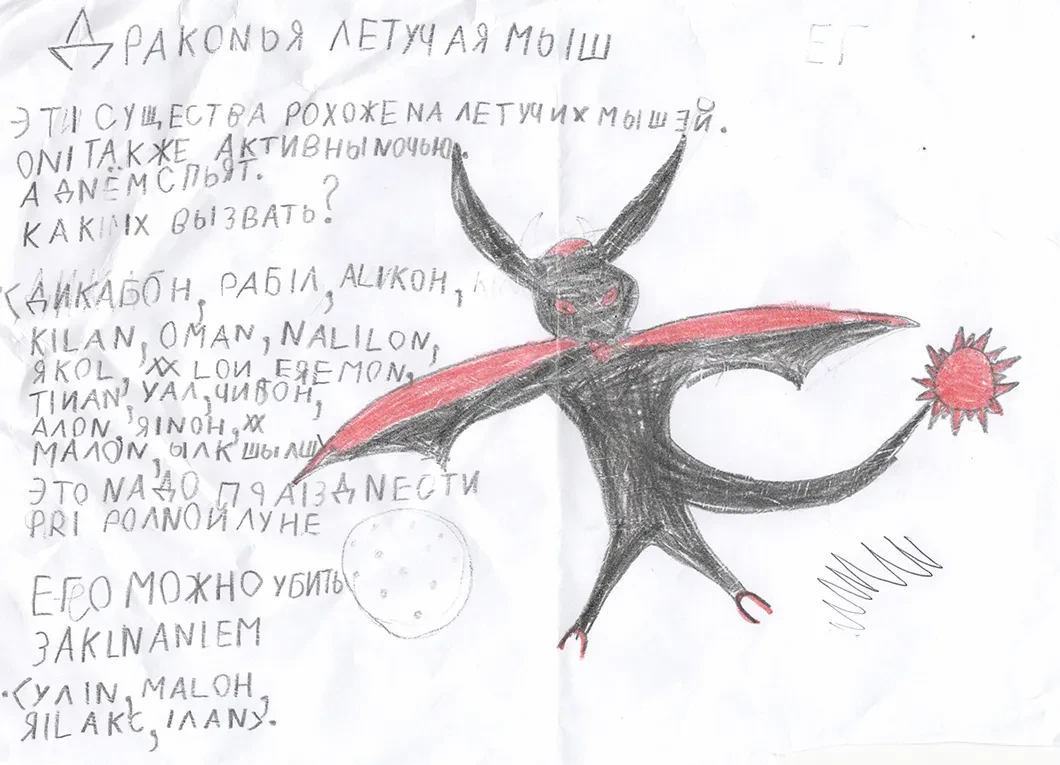 ДРАКОNЬЯ ЛЕТУЧАЯ МЫШ
ЕГ
ЭТИ СУЩЕСТВА PОХОЖЕ NА ЛЕТУЧИХ МЫШЕЙ.
ОNI ТАКЖЕ АКТИВНЫ NОЧЬЮ.
А ДNЁМ СПЬЯТ.
КАК ИХ ВЫЗВАТЬ?
<ДИКАБОН, РАБІЛ, ALIKОН,
KILAN, OMAN, NALILON,
ЯKOL, LON, EREMON,
TIИAN, УАЛ, ЧИВОН,
АЛОN, ЯINОН,
МАЛОN, ЫЛК ШЫЛШ>
ЭТО NАДО ПЯАІЗДNЕСТИ
PRI PОЛNОЙ ЛУНЕ
ЕГО МОЖНО УБИТЬ
ЗАКLNANIEM
<УЛIN, MALOH,
ЯILAKC, IЛАN>.